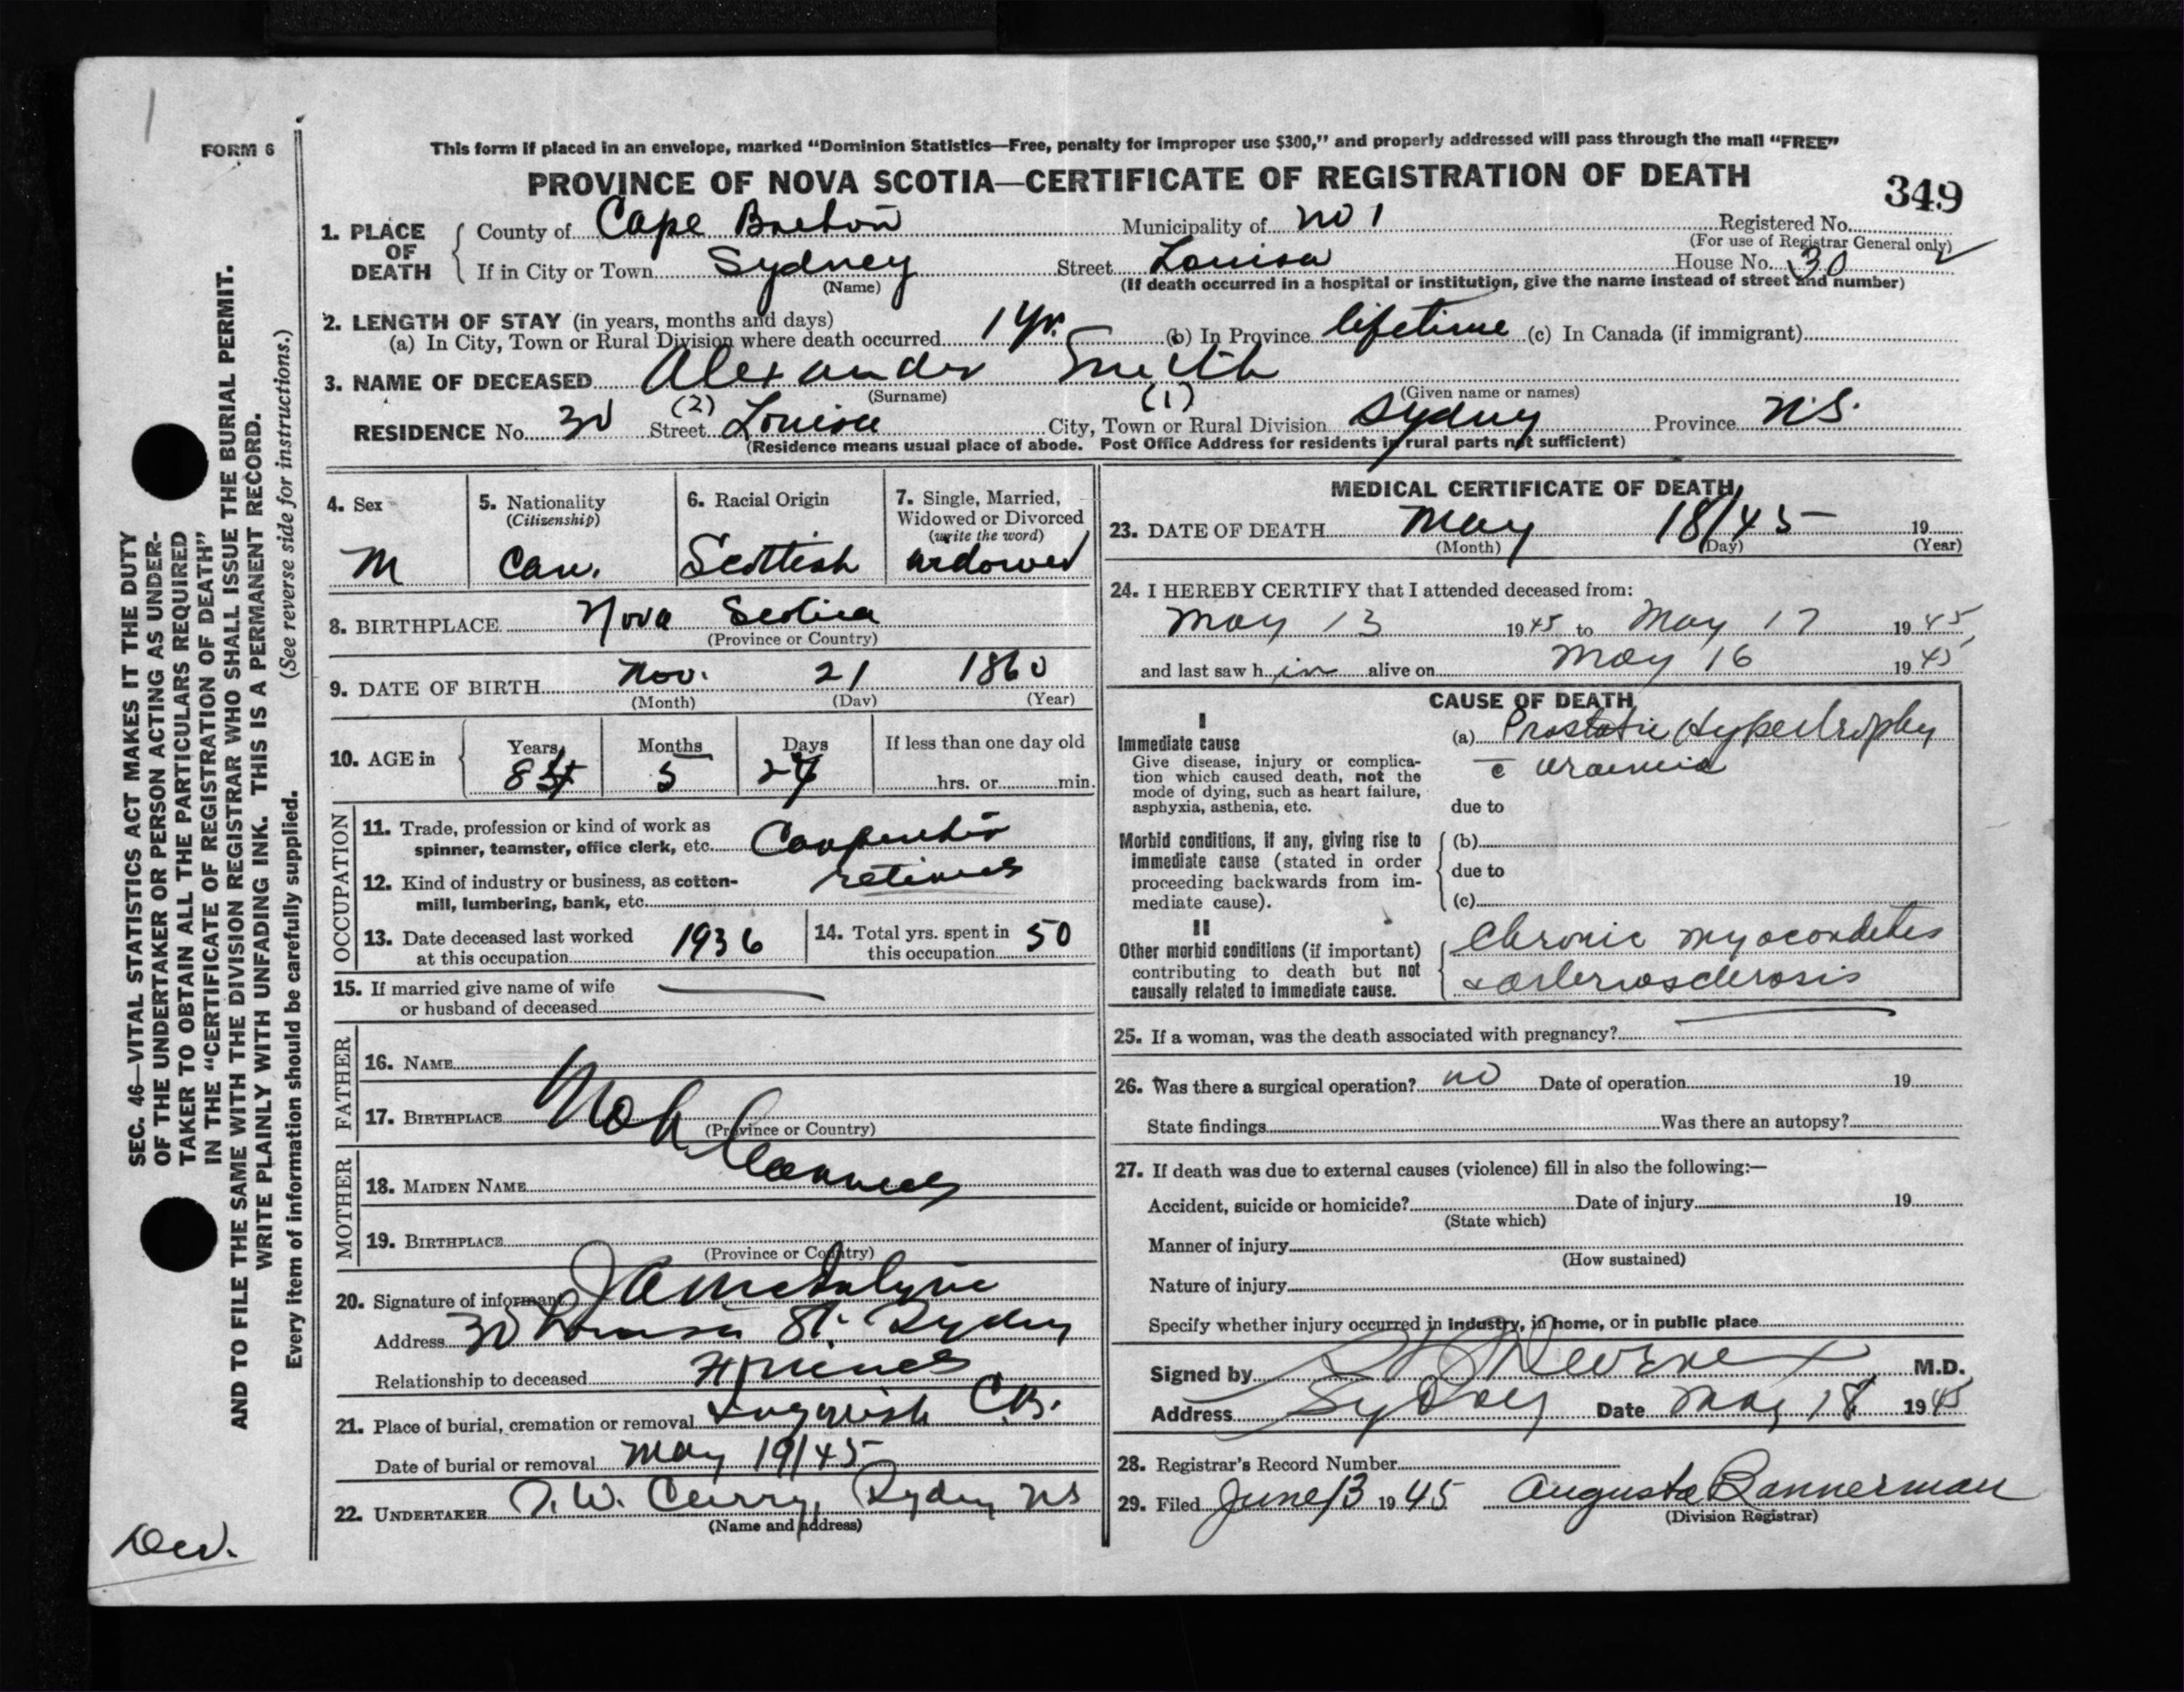 FORM 6
This form if placed in an envelope, marked “Dominion Statistics—Free, penalty for improper use $300,” and properly addressed will pass through the mail “FREE”
PROVINCE OF NOVA SCOTIA—CERTIFICATE OF REGISTRATION OF DEATH
349
1. PLACE OF DEATH
County of Cape Breton Municipality of No 1 Registered No.
(For use of Registrar General only)
If in City or Town Sydney Street Louisa House No. 30
(Name) (If death occurred in a hospital or institution, give the name instead of street and number)
2. LENGTH OF STAY (in years, months and days)
(a) In City, Town or Rural Division where death occurred 1 yr. (b) In Province lifetime (c) In Canada (if immigrant)
3. NAME OF DECEASED Alexander Smith
(Surname) (Given name or names)
(2) (1)
RESIDENCE No. 30 Street Louisa City, Town or Rural Division Sydney Province N.S.
(Residence means usual place of abode. Post Office Address for residents in rural parts not sufficient)
4. Sex
M
5. Nationality
(Citizenship)
Can.
6. Racial Origin
Scottish
7. Single, Married,
Widowed or Divorced
(write the word)
widowed
8. BIRTHPLACE Nova Scotia
(Province or Country)
9. DATE OF BIRTH Nov. 21 1860
(Month) (Day) (Year)
10. AGE in
Years Months Days If less than one day old
84 5 27 hrs. or min.
OCCUPATION
11. Trade, profession or kind of work as
spinner, teamster, office clerk, etc. Carpenter
12. Kind of industry or business, as cotton-
mill, lumbering, bank, etc. retired
13. Date deceased last worked
at this occupation 1936
14. Total yrs. spent in
this occupation 50
15. If married give name of wife
or husband of deceased
FATHER
16. NAME
17. BIRTHPLACE
(Province or Country)
MOTHER
18. MAIDEN NAME
19. BIRTHPLACE
(Province or Country)
20. Signature of informant
Address 30 Louisa St. Sydney
Relationship to deceased
21. Place of burial, cremation or removal C.B.
Date of burial or removal May 19/45
22. UNDERTAKER W. Curry, Sydney NS
(Name and address)
MEDICAL CERTIFICATE OF DEATH
23. DATE OF DEATH May 18/45 19
(Month) (Day) (Year)
24. I HEREBY CERTIFY that I attended deceased from:
May 13 1945 to May 17 1945
and last saw h im alive on May 16 1945
CAUSE OF DEATH
I
Immediate cause
Give disease, injury or complica-
tion which caused death, not the
mode of dying, such as heart failure,
asphyxia, asthenia, etc.
(a) Prostatic Hypertrophy
c̄ uraemia
due to
Morbid conditions, if any, giving rise to
immediate cause (stated in order
proceeding backwards from im-
mediate cause).
(b)
due to
(c)
II
Other morbid conditions (if important)
contributing to death but not
causally related to immediate cause.
Chronic myocarditis
& arteriosclerosis
25. If a woman, was the death associated with pregnancy?
26. Was there a surgical operation? no Date of operation 19
State findings Was there an autopsy?
27. If death was due to external causes (violence) fill in also the following:—
Accident, suicide or homicide? Date of injury 19
(State which)
Manner of injury
(How sustained)
Nature of injury
Specify whether injury occurred in industry, in home, or in public place
Signed by M.D.
Address Sydney Date May 18 1945
28. Registrar's Record Number
29. Filed June 13 1945 Augusta Bannerman
(Division Registrar)
SEC. 46—VITAL STATISTICS ACT MAKES IT THE DUTY
OF THE UNDERTAKER OR PERSON ACTING AS UNDER-
TAKER TO OBTAIN ALL THE PARTICULARS REQUIRED
IN THE “CERTIFICATE OF REGISTRATION OF DEATH”
AND TO FILE THE SAME WITH THE DIVISION REGISTRAR WHO SHALL ISSUE THE BURIAL PERMIT.
WRITE PLAINLY WITH UNFADING INK. THIS IS A PERMANENT RECORD.
Every item of information should be carefully supplied. (See reverse side for instructions.)